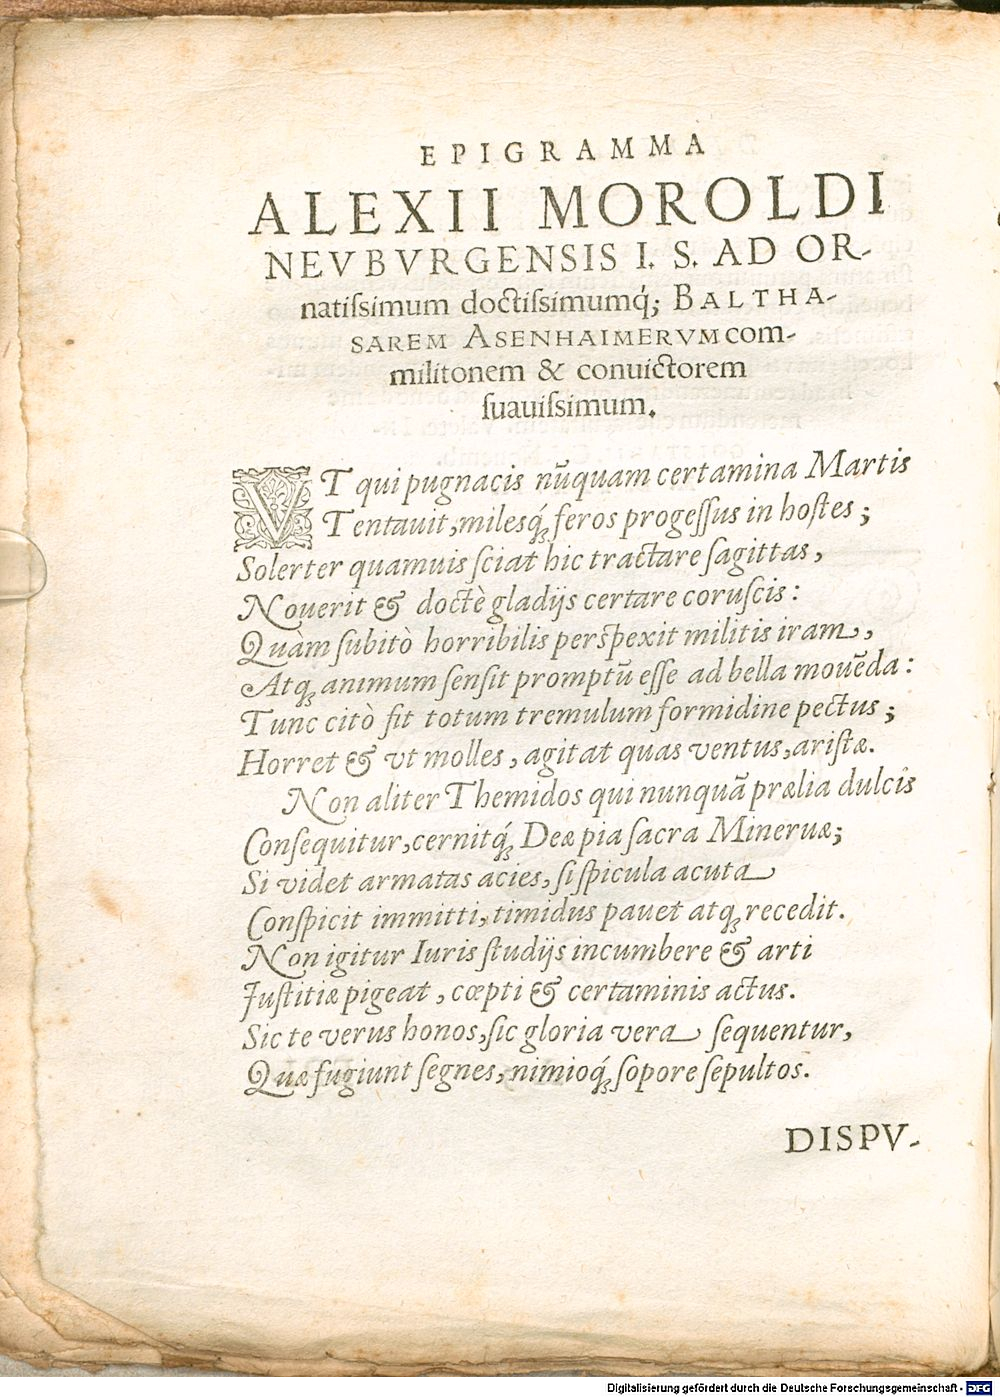 EPIGRAMMA
ALEXII MOROLDI
NEVBVRGENSIS I. S. AD OR-
natiſsimum doctiſsimumq́; BALTHA-
SAREM ASENHAIMERVM com-
militonem & conuictorem
ſuauiſsimum.
VT qui pugnacis nūquam certamina Martis
Tentauit, milesq́; feros progeſſus in hoſtes;
Solerter quamuis ſciat hic tractare ſagittas,
Nouerit & doctè gladijs certare coruſcis:
Quàm ſubitò horribilis perſpexit militis iram,
Atq; animum ſenſit promptū eſſe ad bella mouēda:
Tunc citò fit totum tremulum formidine pectus;
Horret & vt molles, agitat quas ventus, ariſtæ.
Non aliter Themidos qui nunquā prælia dulcis
Conſequitur, cernitq́; Deæ pia ſacra Mineruæ;
Si videt armatas acies, ſi ſpicula acuta
Conſpicit immitti, timidus pauet atq; recedit.
Non igitur Iuris ſtudijs incumbere & arti
Juſtitiæ pigeat, cœpti & certaminis actus.
Sic te verus honos, ſic gloria vera ſequentur,
Quæ fugiunt ſegnes, nimioq́; ſopore ſepultos.
DISPV-
Digitalisierung gefördert durch die Deutsche Forschungsgemeinschaft - DFG